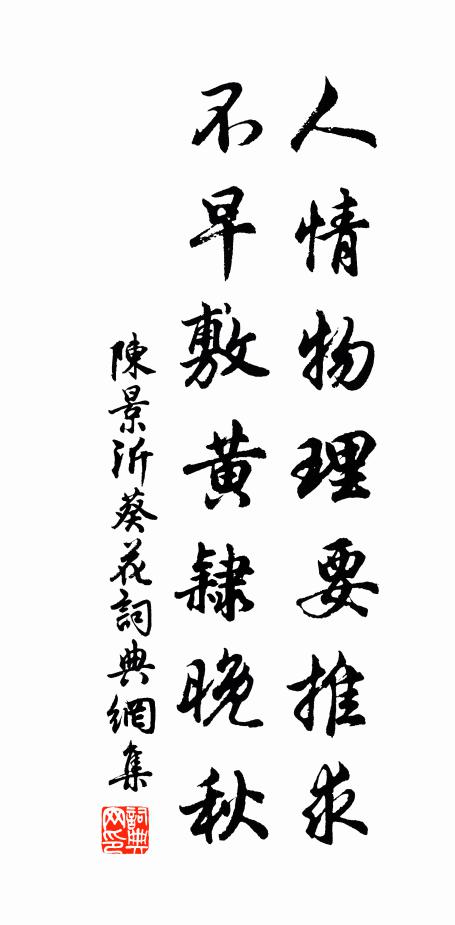 人情物理要推求
不早敷黃隸晚秋
陳景沂葵花詞典網集
詞典网印